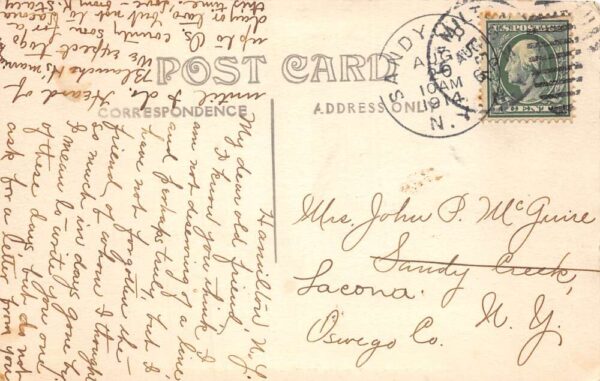 POST CARD
CORRESPONDENCE
ADDRESS ONLY
SANDY
AUG
26
10 AM
191
N.Y.
U.S. POSTAGE
CENT
Mrs. John P. McGuire
Sandy Creek,
Lacona.
N. Y.
Oswego Co.
Hamilton N.Y.
My dear old friend,
I know you think I
am not deserving of a line
and perhaps truly, but I
have not forgotten the
friend of whom I thought
so much in days gone by
I mean to write you one
of these days, but do not
ask for a letter from you
until I do. Heard of
Blanche H's marr
We expect to go
up to Os. county soon for a
day or two but not to Lacona
this time. Love - from K. Stacy